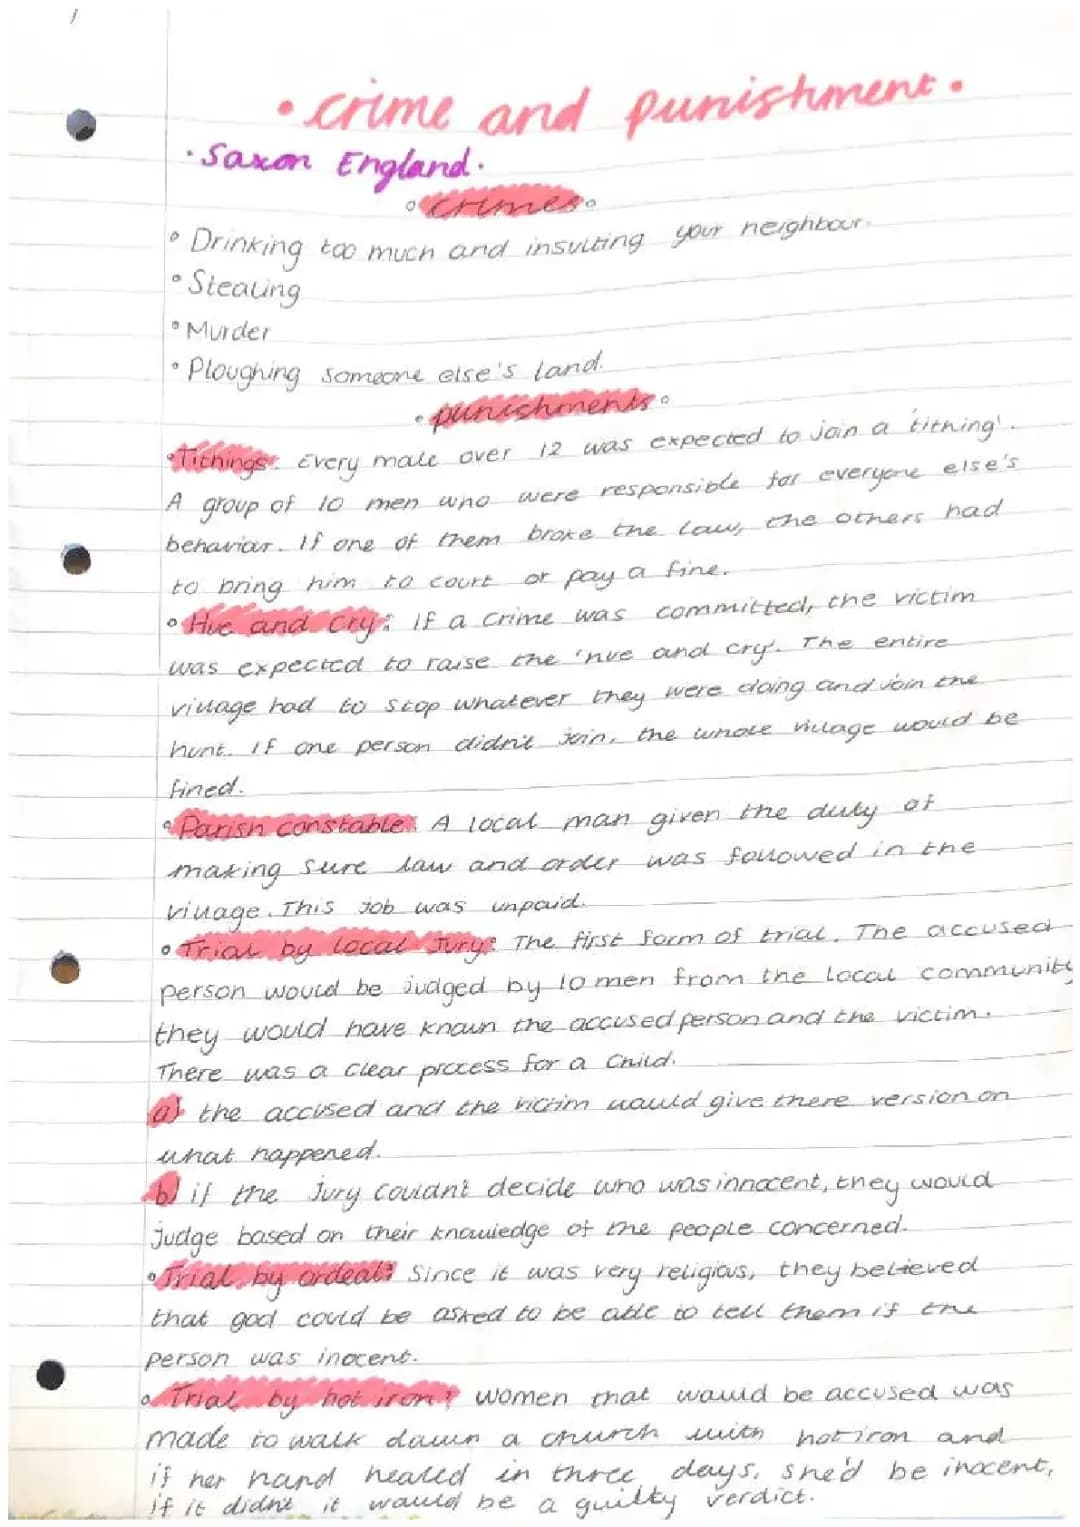 • crime and punishment •
• Saxon England.
crimes
° Drinking too much and insulting your neighbour.
° Stealing
° Murder
° Ploughing someone else's land.
• punishments °
• Tithings: Every male over 12 was expected to join a 'tithing'.
A group of 10 men who were responsible for everyone else's
behaviour. If one of them broke the law, the others had
to bring him to court or pay a fine.
° Hue and Cry: If a crime was committed, the victim
was expected to raise the 'hue and cry'. The entire
village had to stop whatever they were doing and join the
hunt. If one person didn't join, the whole village would be
fined.
° Parish constable: A local man given the duty of
making sure law and order was followed in the
village. This job was unpaid.
° Trial by local Jury: The first form of trial. The accused
person would be judged by 10 men from the local community
they would have known the accused person and the victim.
There was a clear process for a Child.
a) the accused and the victim would give there version on
what happened.
b) if the Jury couldn't decide who was innocent, they would
judge based on their knowledge of the people concerned.
° Trial by ordeal: Since it was very religious, they believed
that god could be asked to be able to tell them if the
person was inocent.
° Trial by hot iron: women that would be accused was
made to walk down a church with hot iron and
if her hand healed in three days, she'd be inocent,
if it didn't it would be a guilty verdict.